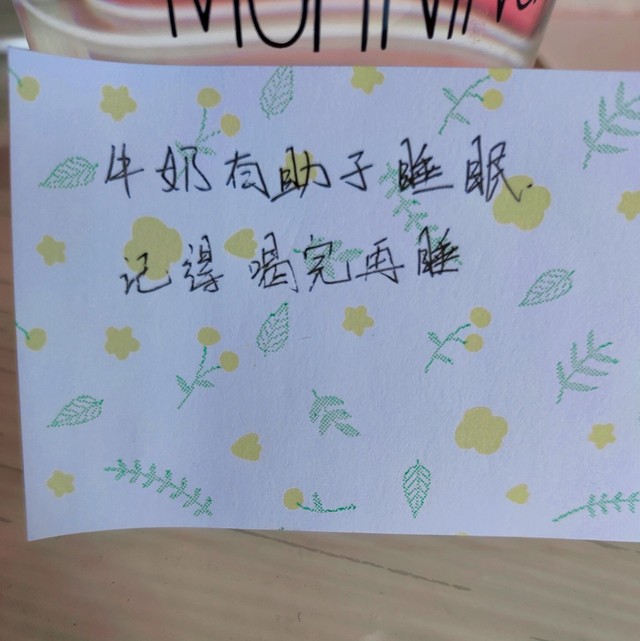 牛奶有助于睡眠.
记得喝完再睡